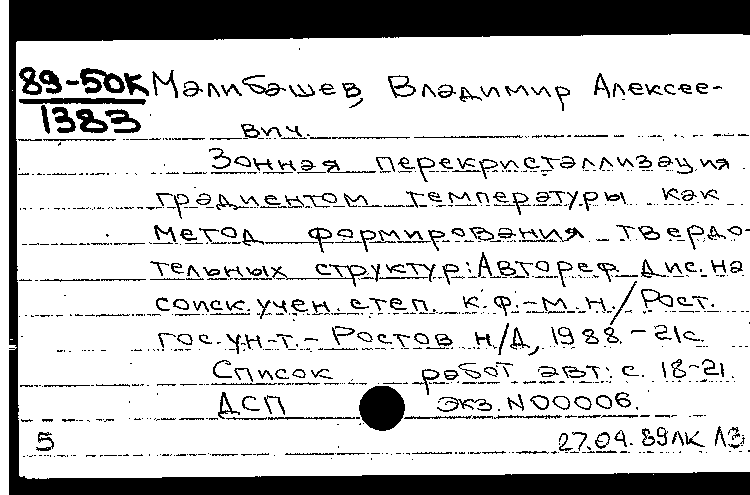 89-50К Малибашев, Владимир Алексее-
1383 вич.
Зонная перекристаллизация
градиентом температуры как
метод формирования твердо-
тельных структур: Автореф. дис. на
соиск. учен. степ. к.ф.-м.н./Рост.
гос. ун-т. - Ростов н/Д, 1988 - 21с
Список работ авт: с. 18-21.
ДСП экз. N00006.
5 27.04.89 ЛК ЛЗ